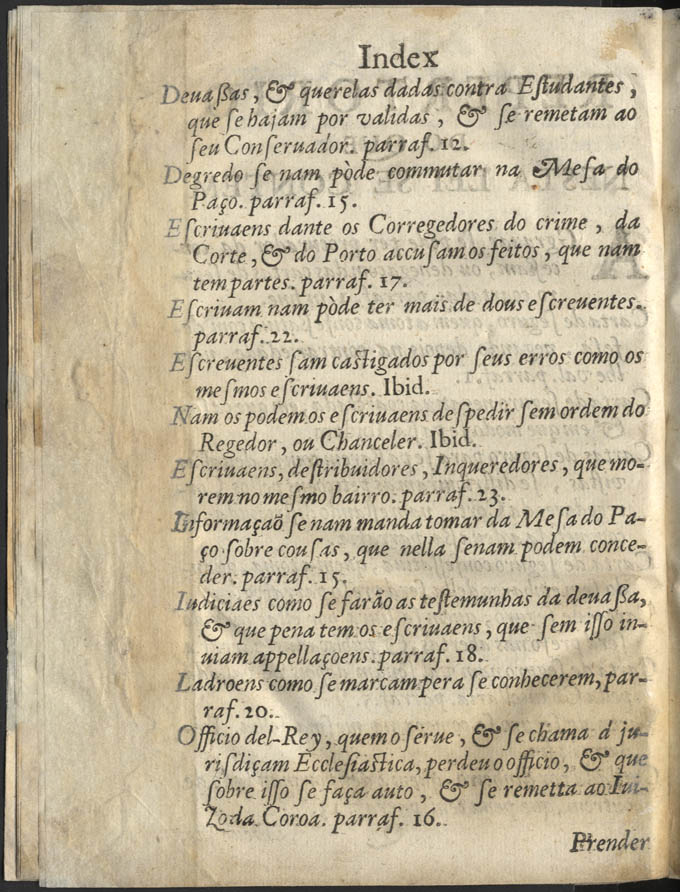 Index
Deuaßas, & querelas dadas contra Eſtudantes,
que ſe hajam por validas, & ſe remetam ao
ſeu Conſeruador. parraf. 12.
Degredo ſe nam pòde commutar na Meſa do
Paço. parraf. 15.
Eſcriuaens dante os Corregedores do crime, da
Corte, & do Porto accuſam os feitos, que nam
tem partes. parraf. 17.
Eſcriuam nam pòde ter mais de dous eſcreuentes.
parraf. 22.
Eſcreuentes ſam caſtigados por ſeus erros como os
meſmos eſcriuaens. Ibid.
Nam os podem os eſcriuaens deſpedir ſem ordem do
Regedor, ou Chanceler. Ibid.
Eſcriuaens, deſtribuidores, Inqueredores, que mo-
rem no meſmo bairro. parraf. 23.
Informaçaõ ſe nam manda tomar da Meſa do Pa-
ço ſobre couſas, que nella ſenam podem conce-
der. parraf. 15.
Iudiciaes como ſe farão as teſtemunhas da deuaßa,
& que pena tem os eſcriuaens, que ſem iſſo in-
uiam appellaçoens. parraf. 18.
Ladroens como ſe marcam pera ſe conhecerem, par-
raf. 20.
Officio del-Rey, quem o ſerue, & ſe chama á ju-
riſdiçam Eccleſiaſtica, perdeu o officio, & que
ſobre iſſo ſe faça auto, & ſe remetta ao Iui-
Zo da Coroa. parraf. 16.
Prender